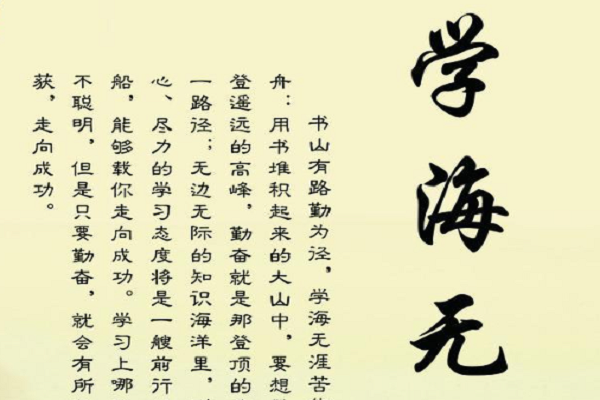 学海无
书山有路勤为径，学海无涯苦
舟：用书堆积起来的大山中，要想
登遥远的高峰，勤奋就是那登顶的
一路径；无边无际的知识海洋里，
心、尽力的学习态度将是一艘前行
船，能够载你走向成功。学习上哪
不聪明，但是只要勤奋，就会有所
获，走向成功。